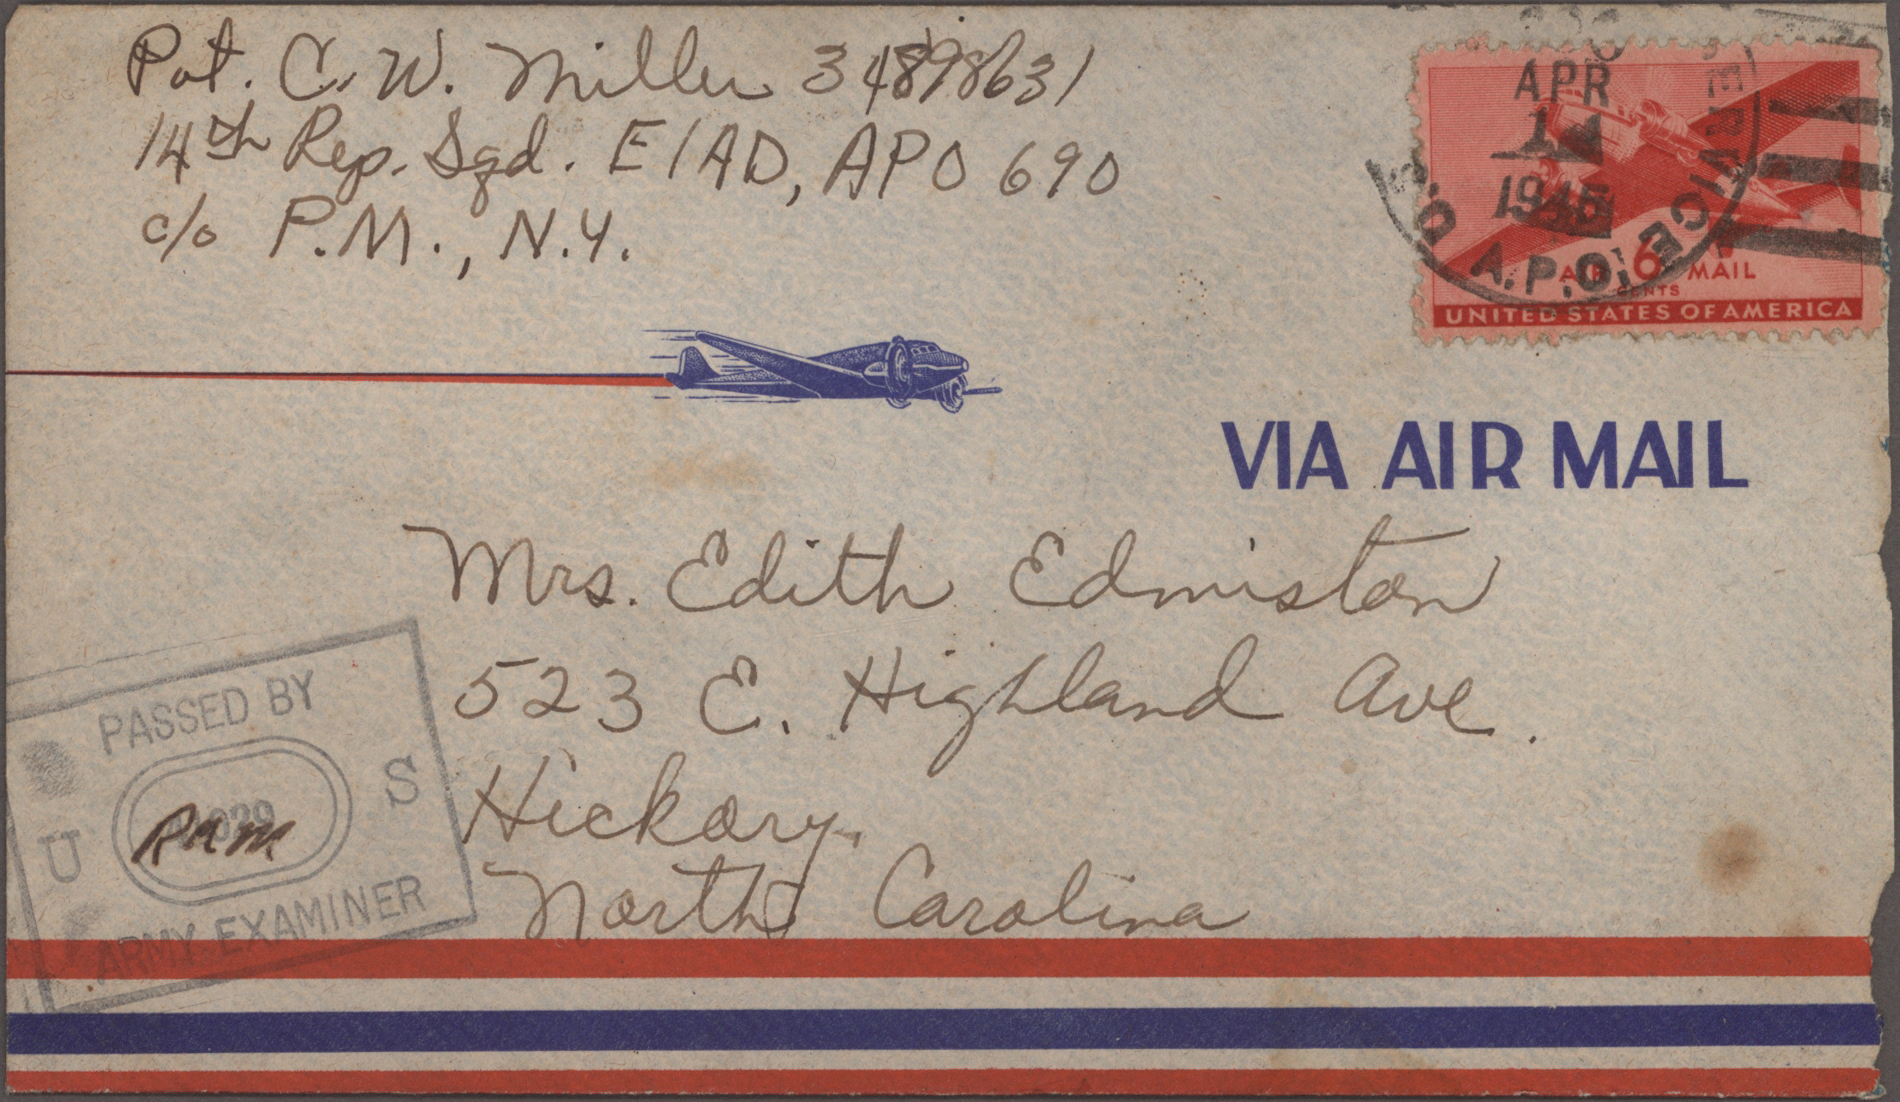 Pvt. C. W. Miller 34898631
14th Rep. Sqd. E1AD, APO 690
c/o P.M., N.Y.
APR
14
1945
SERVICE
A.P.O.
AIR 6 MAIL
CENTS
UNITED STATES OF AMERICA
VIA AIR MAIL
Mrs. Edith Edmiston
523 E. Highland Ave.
Hickory,
North Carolina
PASSED BY
U S
ARMY EXAMINER